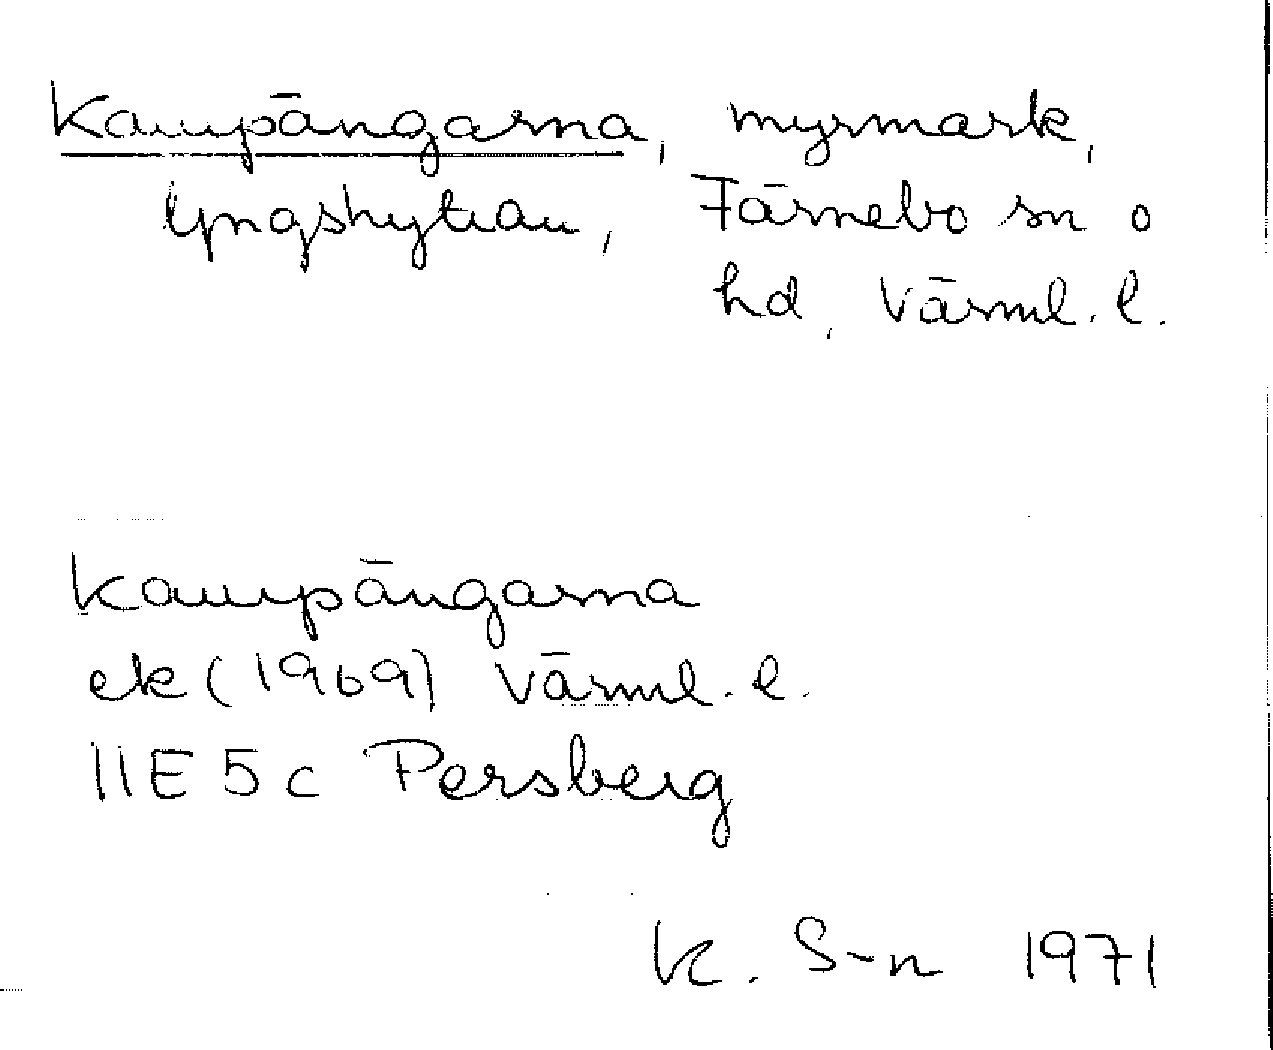 Kampängarna, myrmark,
Yngshyttan, Färnebo sn o
hd, Värml. l.
Kampängarna
ek (1969) Värml. l.
11E 5c Persberg
K. S-n 1971